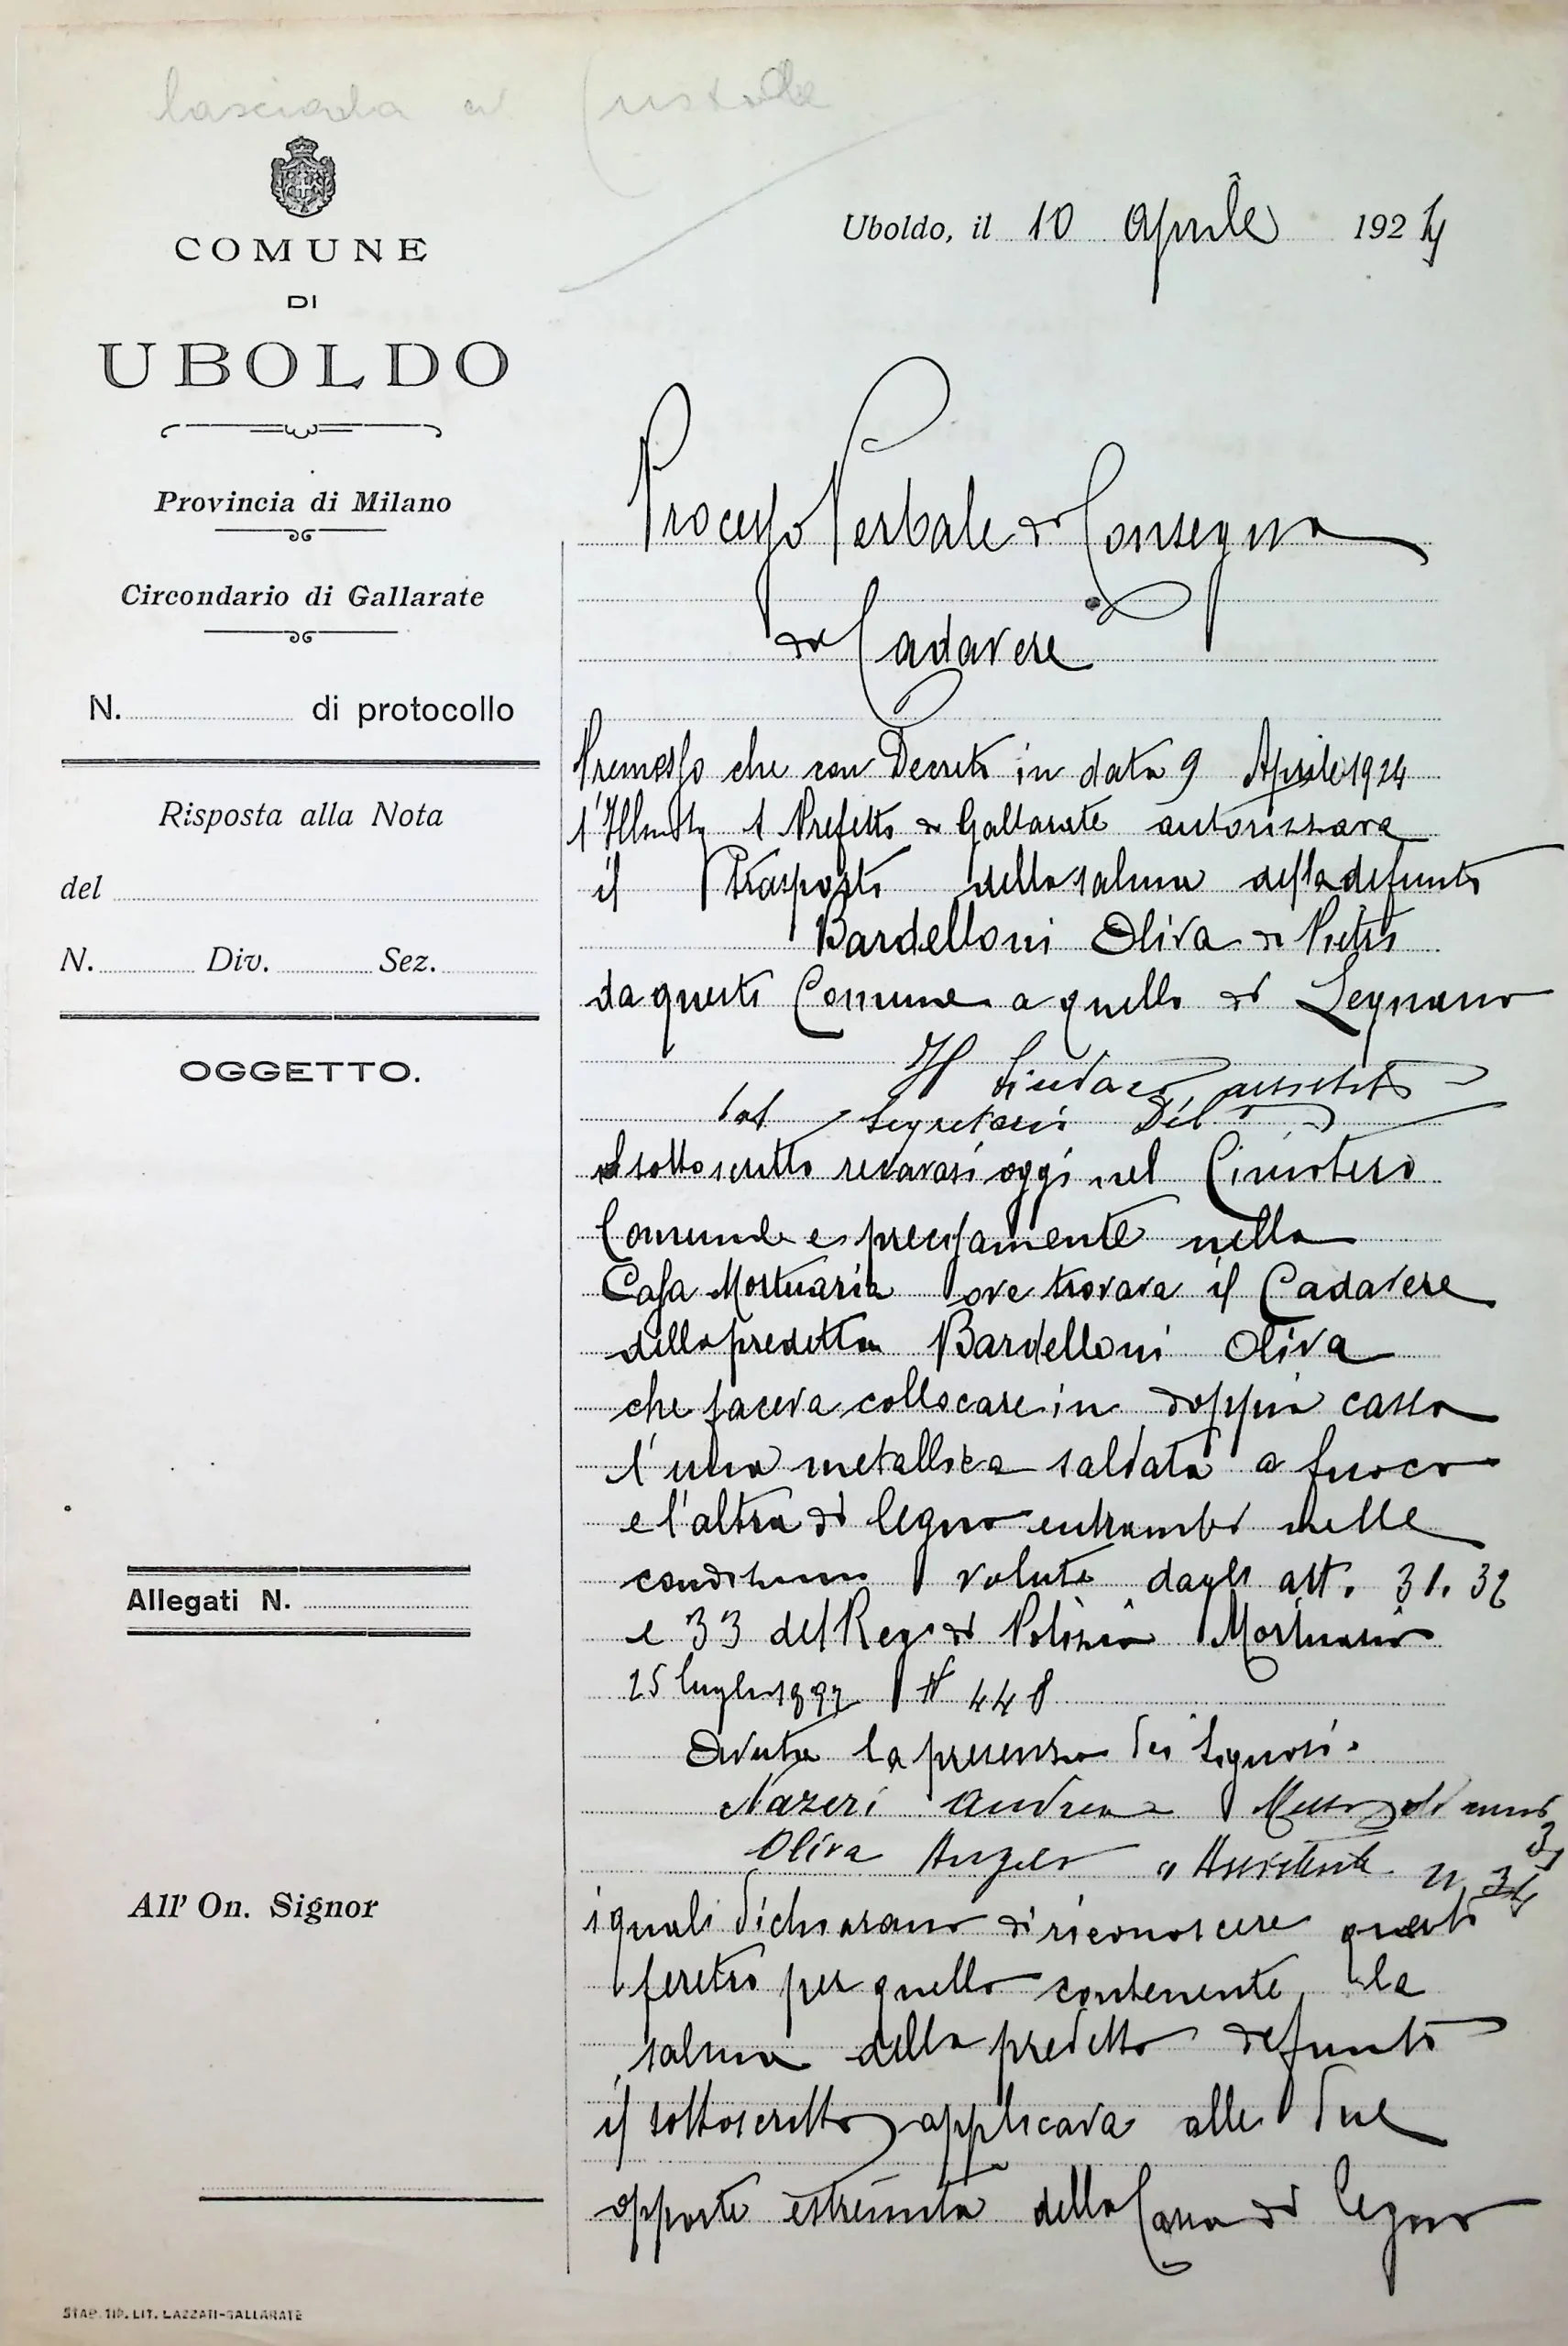 lasciata a
COMUNE
DI
UBOLDO
Provincia di Milano
Circondario di Gallarate
N. di protocollo
Risposta alla Nota
del
N. Div. Sez.
OGGETTO.
Allegati N.
All' On. Signor
STAB. TIP. LIT. LAZZATI-GALLARATE
Uboldo, il 10 Aprile 1924
Processo Verbale di Consegna
di Cadavere
Premesso che con Decreto in data 9 Aprile 1924
Prefetto di Gallarate autorizzava
il trasporto della salma della defunta
Bardelloni Oliva di Pietro
da questo Comune a quello di Legnano
Il Sindaco assistito
dal Segretario Del
sottoscritto recavasi oggi nel Cimitero
Comunale e precisamente nella
Casa Mortuaria ove trovava il Cadavere
della predetta Bardelloni Oliva
che faceva collocare in doppia cassa
l'una metallica saldata a fuoco
e l'altra di legno entrambi nelle
condizioni volute dagli art. 31. 32
e 33 del Reg. di Polizia Mortuaria
25 luglio 1892 N 448
Avuta la presenza dei Signori.
Nazeri Andrea di anni 31
Oliva Angelo Assistente 34
i quali dichiarano di riconoscere questo
feretro per quello contenente la
salma della predetta defunta
il sottoscritto applicava alle due
opposte estremità della Cassa di legno